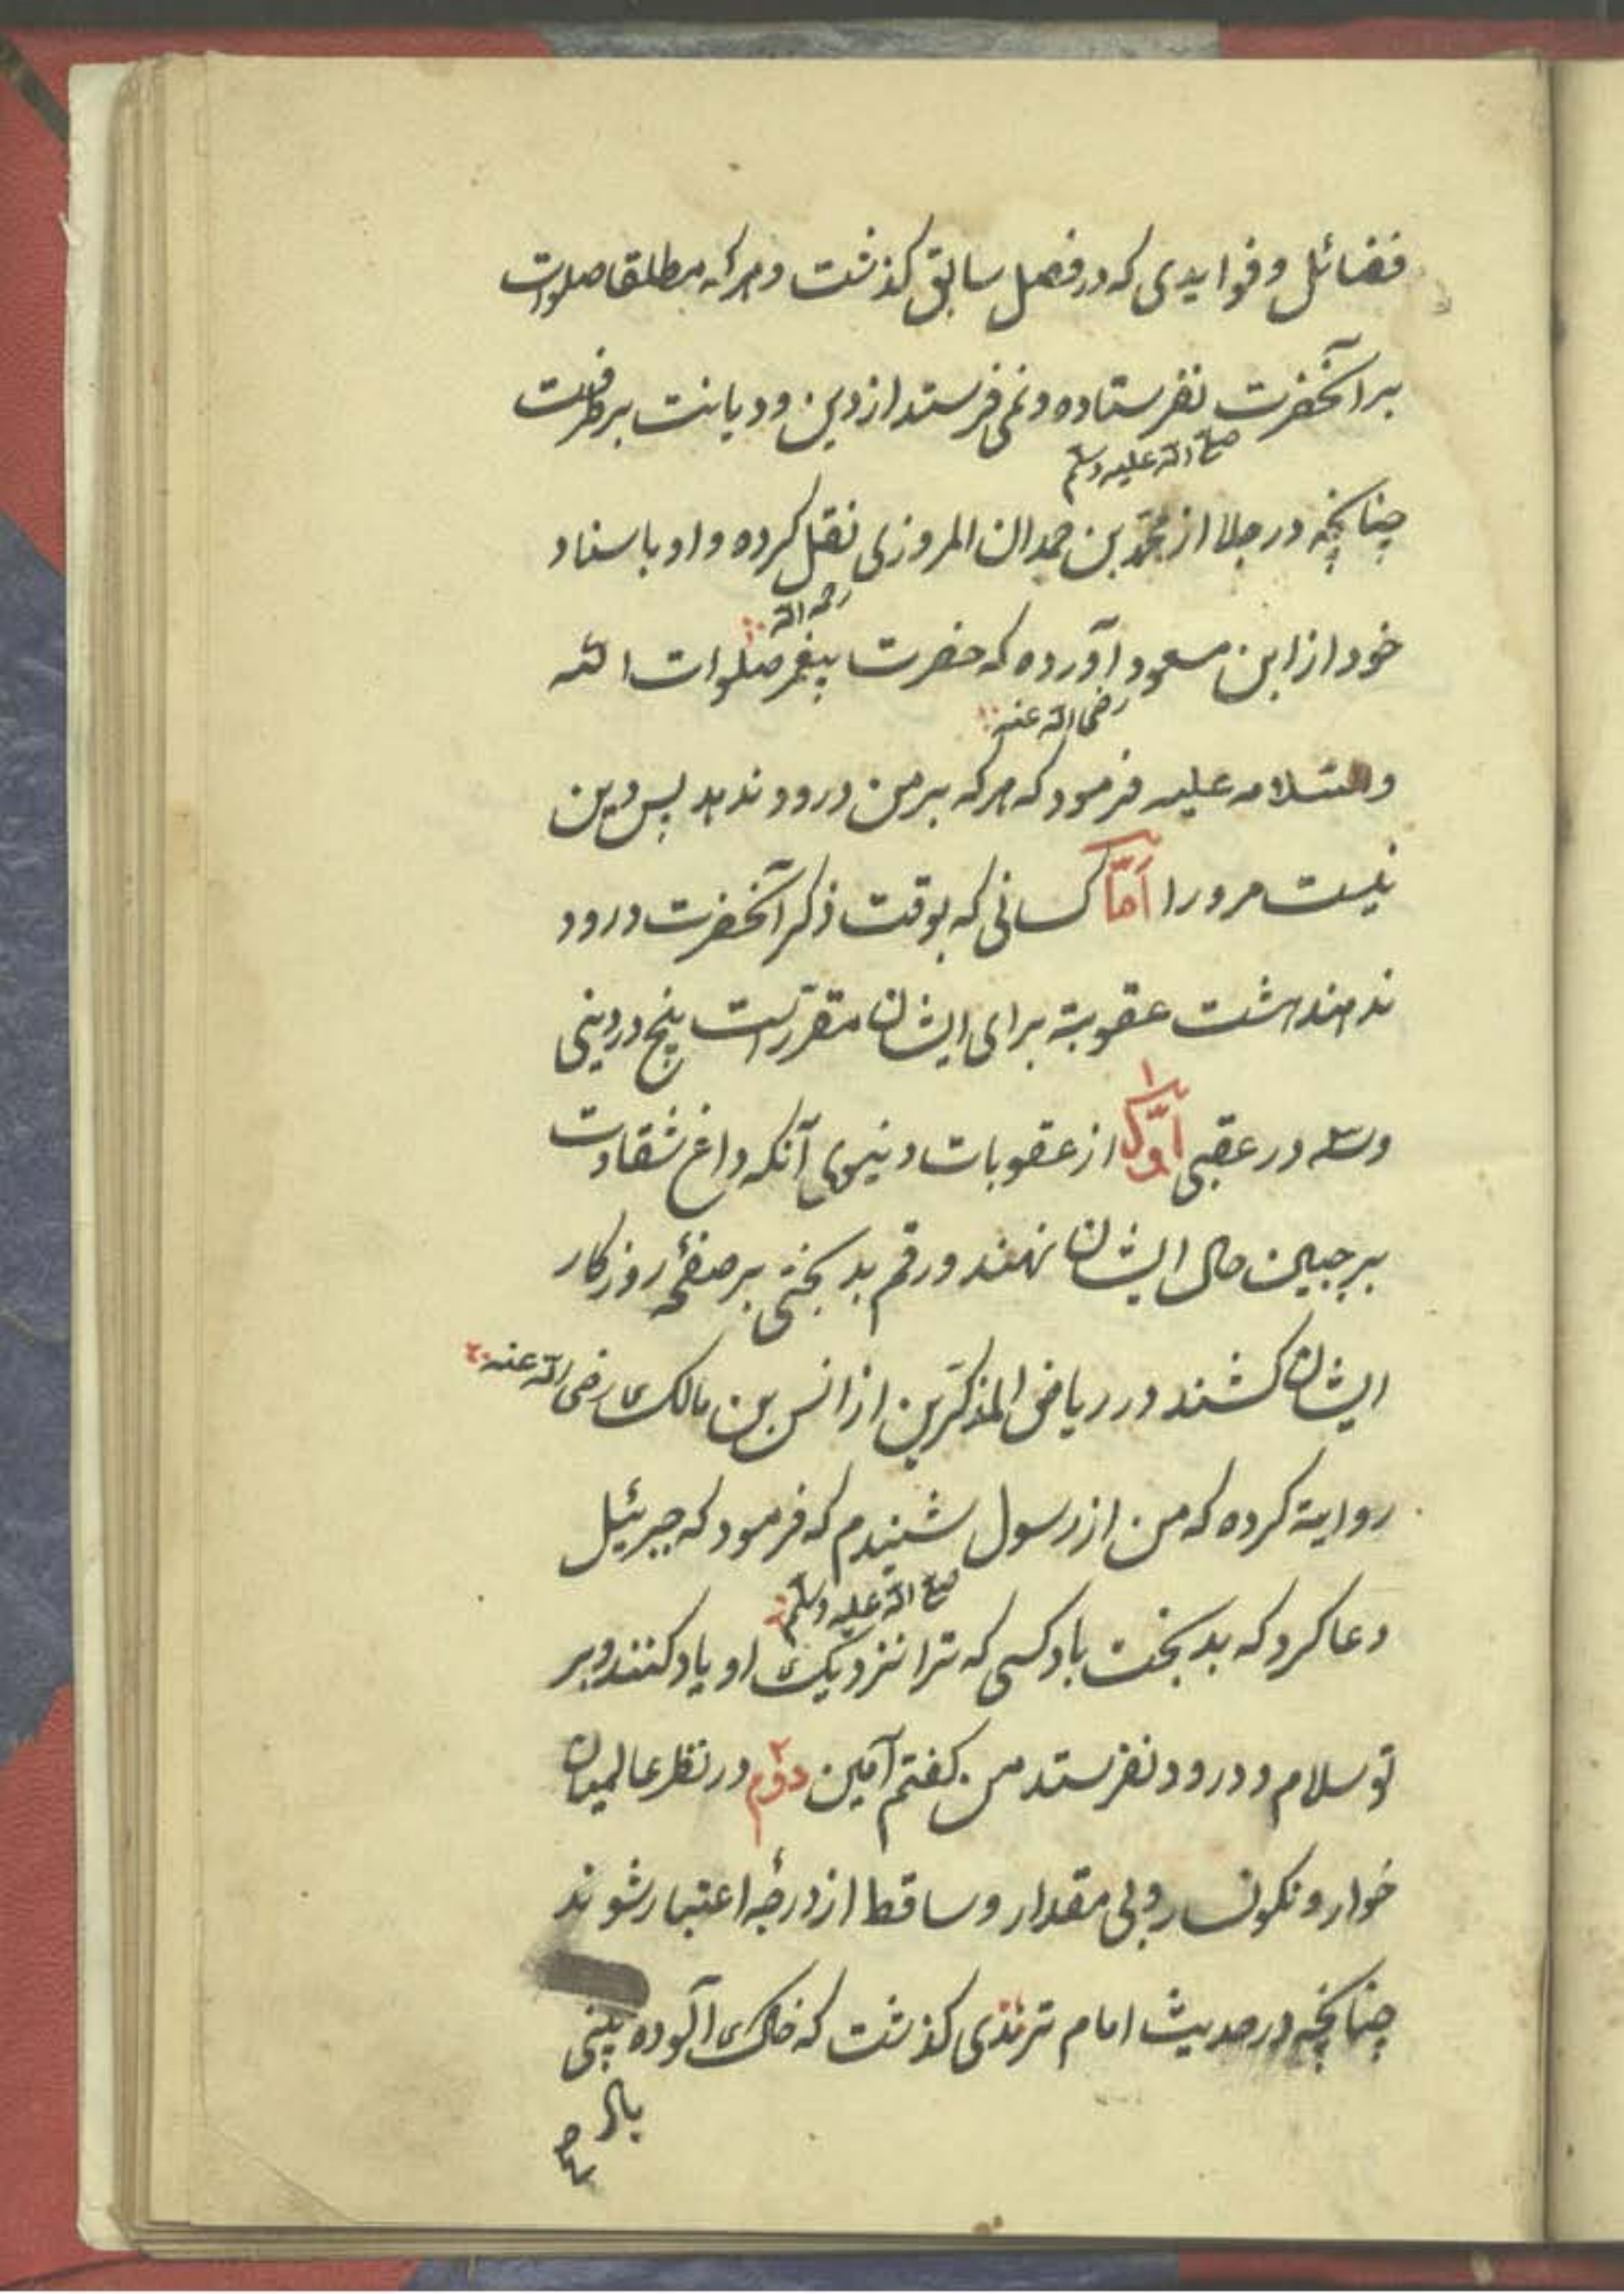 فضائل و فوایدی که در فصل سابق کذشت و هرکه مطلقا صلوات
بر آنحضرت نفرستاده و نمی فرستد از دین و دیانت برطرفست
صلی الله علیه وسلم
چنانچه در جلا از محمد بن حمدان المروزی نقل کرده و او باسناد
رحمه الله
خود از ابن مسعود آورده که حضرت پیغمبر صلوات الله
رضی الله عنه
والسلامه علیه فرمود که هرکه بر من درود ندهد پس دین
نیست مرورا اَمّا کسانی که بوقت ذکر آنحضرت درود
ندهند هشت عقوبة برای ایشان مقررست پنج در دینی
وسه در عقبی اوّل ۱ از عقوبات دنیوی آنکه داغ شقاوت
بر جبین حال ایشان نهند و رقم بدبختی بر صفحهٔ روزکار
ایشان کشند در ریاض المذکّرین از انس بن مالک رضی الله عنه
روایة کرده که من از رسول شنیدم که فرمود که جبرئیل
صلی الله علیه وسلم
دعا کرد که بدبخت باد کسی که ترا نزدیک او یاد کنند و بر
تو سلام و درود نفرستد من کفتم آمین دوّم ۲ در نظر عالمیان
خوار و نکونسار و بی مقدار و ساقط از درجهٔ اعتبار شوند
چنانچه در حدیث امام ترمذی کذشت که خاک آلوده بینی
باد